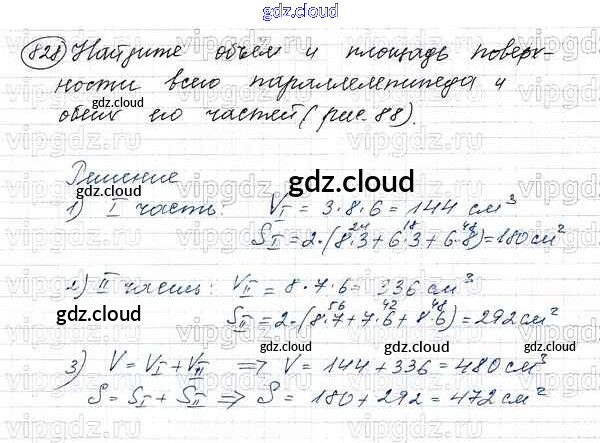 gdz.cloud
828) Найдите объём и площадь поверх-
ности всего параллелепипеда и
gdz.cloud
обеих его частей (рис 88).
Решение
gdz.cloud
gdz.cloud
1) I часть: V_I = 3·8·6 = 144 см³
24 18 48
S_I = 2·(8·3+6·3+6·8)=180см²
2) II часть: V_II = 8·7·6 = 336 см³
56 42 48
S_II = 2·(8·7+7·6+8·6)=292см²
gdz.cloud
gdz.cloud
gdz.cloud
3) V = V_I + V_II ⇒ V = 144+336 = 480 см³
S = S_I + S_II ⇒ S = 180+292 = 472 см²
gdz.cloud
gdz.cloud